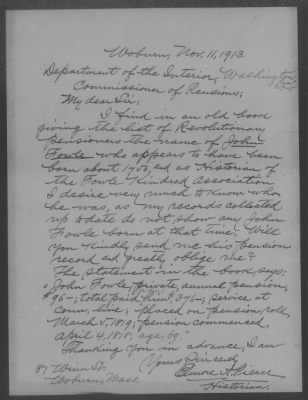 Woburn, Nov. 11, 1913.
Department of the Interior, Washington,
D.C.
Commissioner of Pensions;
My dear Sir;
I find in an old book
giving the list of Revolutionary
pensioners the name of John
Fowle who appears to have been
born about 1750, and as Historian of
the Fowle Kindred Association
I desire very much to know who
he was, as my records collected
up to date do not show any John
Fowle born at that time. Will
you kindly send me his pension
record and greatly oblige me?
The statement in the book, says:
"John Fowle, private, annual pension,
$96-; total paid him, 376-; service at
Conn. line; placed on pension, roll,
March 5, 1819; pension commenced,
April 4, 1818; age, 69."
Thanking you in advance, I am
Yours Sincerely,
Pierce
Historian.
87 Winn St.
Woburn, Mass.